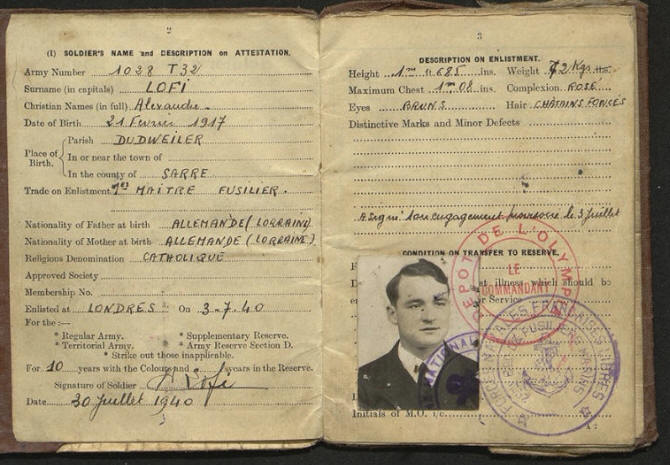 2
(1) SOLDIER'S NAME and DESCRIPTION on ATTESTATION.
Army Number 1028 T32
Surname (in capitals) LOFI
Christian Names (in full) Alexandre.
Date of Birth 21 Février 1917
Place of Birth.
Parish DUDWEILER
In or near the town of
In the county of SARRE
Trade on Enlistment MAITRE FUSILIER.
Nationality of Father at birth ALLEMANDE (LORRAINE)
Nationality of Mother at birth ALLEMANDE (LORRAINE)
Religious Denomination CATHOLIQUE
Approved Society
Membership No.
Enlisted at LONDRES On 3.7.40
For the :—
* Regular Army. * Supplementary Reserve.
* Territorial Army. * Army Reserve Section D.
* Strike out those inapplicable.
For 10 years with the Colours and years in the Reserve.
Signature of Soldier A Lofi
Date 30 Juillet 1940
3
DESCRIPTION ON ENLISTMENT.
Height 1m ft 685 ins. Weight 72 Kgs
Maximum Chest 1m 08 ins. Complexion ROSÉ
Eyes BRUNS Hair CHATAINS FONCÉS
Distinctive Marks and Minor Defects
A signé son engagement le 3 juillet
CONDITION ON TRANSFER TO RESERVE.
at illness which should be
Service
DEPOT DE L'OLYMP
LE COMMANDANT
NATIONAL
Initials of M.O. i/c.